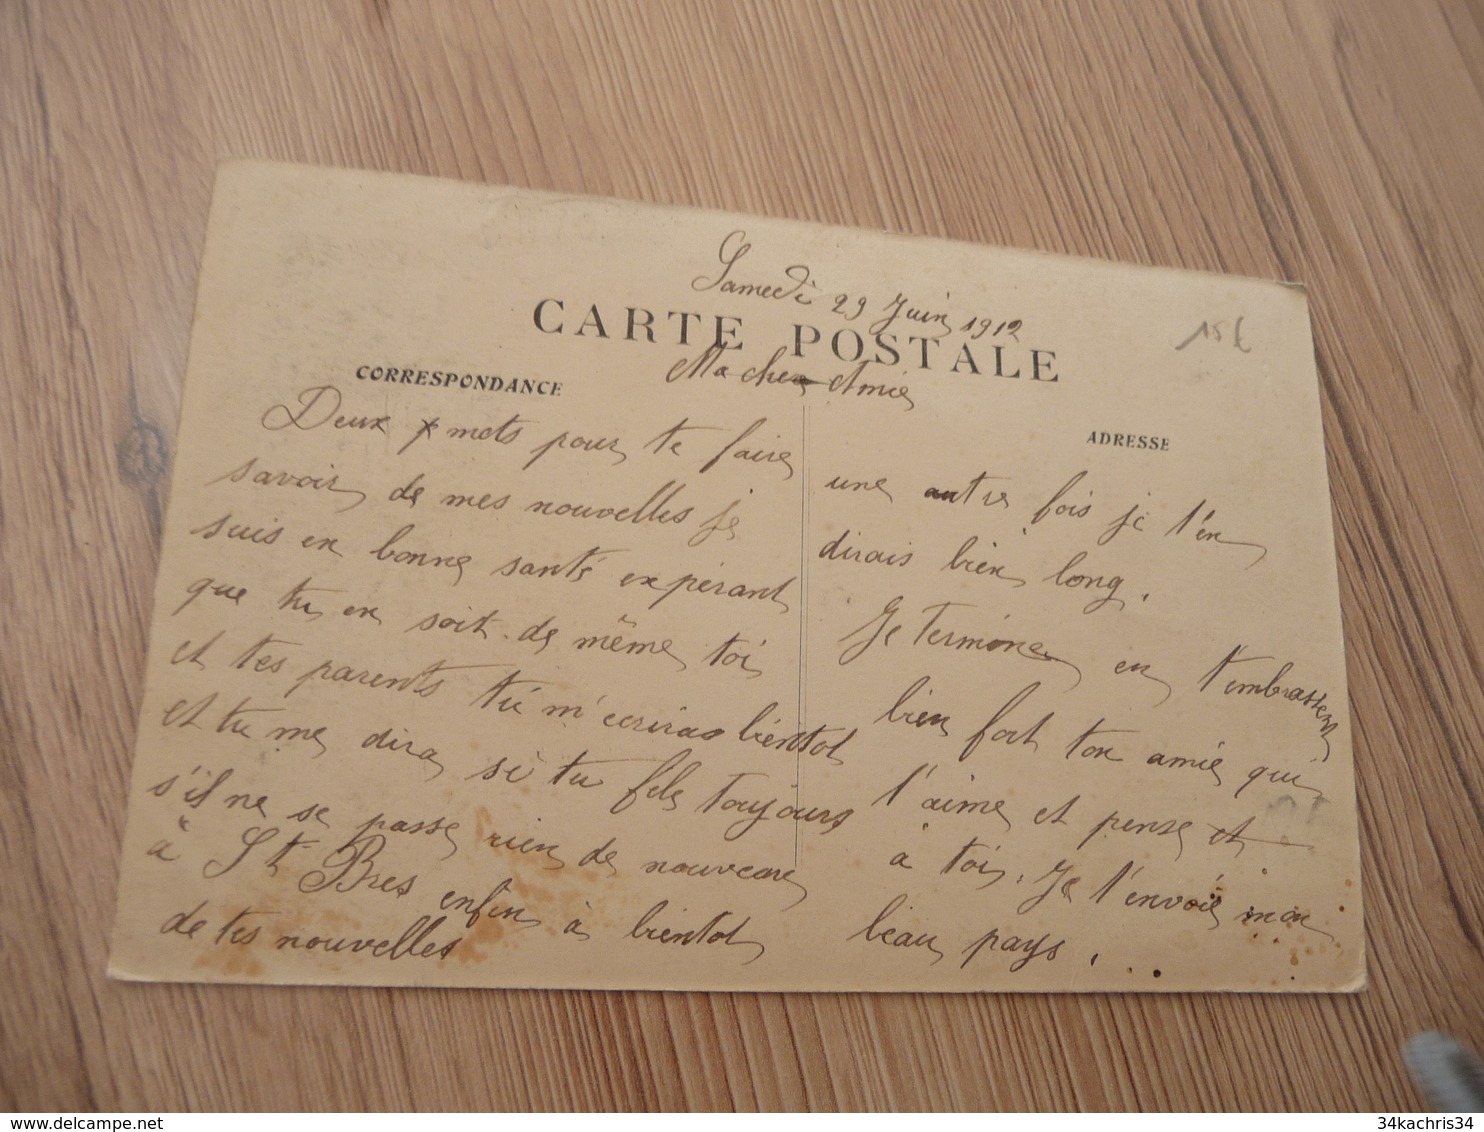 Samedi 29 Juin 1912
CARTE POSTALE
15€
Ma chere Amie
CORRESPONDANCE
ADRESSE
Deux mots pour te faire
savoir de mes nouvelles je
suis en bonne santé expérant
que tu en soit de même toi
et tes parents tu m'ecriras bientot
et tu me dira si tu fels toujours
s'il ne se passe rien de nouveau
à St Bres enfin à bientot
de tes nouvelles
une autre fois je t'en
dirais bien long.
Je termine en t'embrassen
bien fort ton amie qui
t'aime et pense et
à toi. Je t'envoie mon
beau pays...
34kachris34